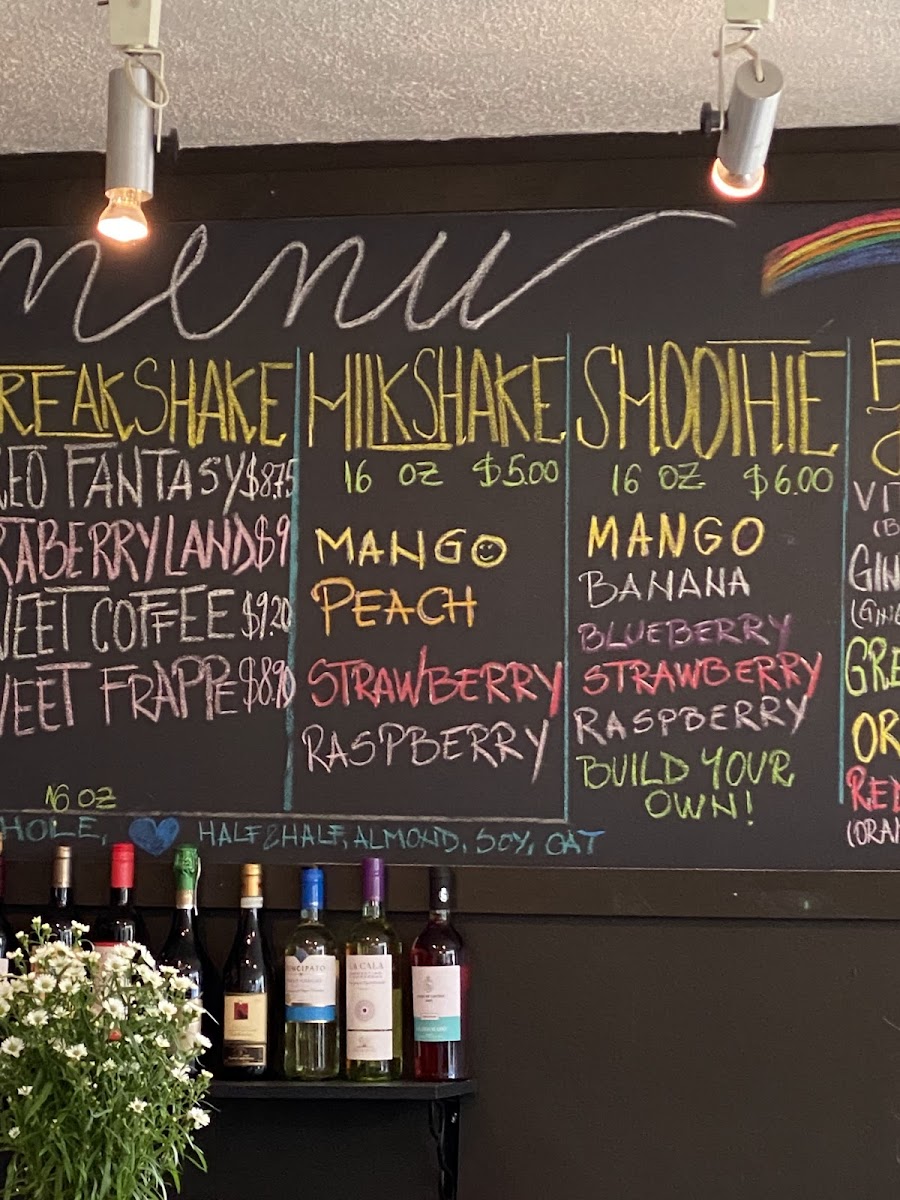 menu
REAKSHAKE
EO FANTASY $8.75
RABERRYLAND $9
WEET COFFEE $9.20
WEET FRAPPE $8.90
16 OZ
HOLE, HALF&HALF, ALMOND, SOY, OAT
MILKSHAKE
16 OZ $5.00
MANGO
PEACH
STRAWBERRY
RASPBERRY
SMOOTHIE
16 OZ $6.00
MANGO
BANANA
BLUEBERRY
STRAWBERRY
RASPBERRY
BUILD YOUR
OWN!
VIT
(B
GIN
(GING
GRE
OR
RED
(ORAN
LA CALA